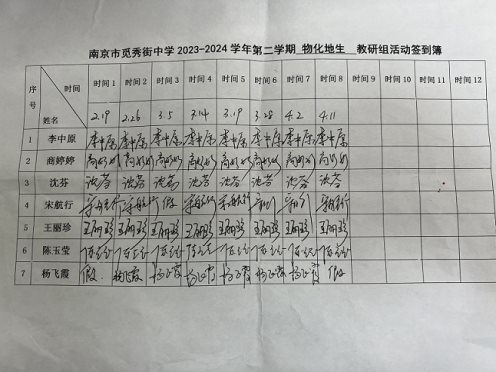 南京市觅秀街中学 2023-2024 学年第二学期 物化地生 教研组活动签到簿
序号 时间 姓名 时间 1 时间 2 时间 3 时间 4 时间 5 时间 6 时间 7 时间 8 时间 9 时间 10 时间 11 时间 12
2.19 2.26 3.5 3.14 3.19 3.28 4.2 4.11
1 李中原 李中原 李中原 李中原 李中原 李中原 李中原 李中原 李中原
2 商婷婷 商婷婷 商婷婷 商婷婷 商婷婷 商婷婷 商婷婷 商婷婷 商婷婷
3 沈芬 沈芬 沈芬 沈芬 沈芬 沈芬 沈芬 沈芬 沈芬
4 宋航行 宋航行 宋航行 假 宋航行 宋航行
5 王丽珍 王丽珍 王丽珍 王丽珍 王丽珍 王丽珍 王丽珍 王丽珍 王丽珍
6 陈玉莹 陈玉莹 陈玉莹 陈玉莹 陈玉莹 陈玉莹 陈玉莹 陈玉莹 陈玉莹
7 杨飞霞 假 杨飞霞 杨飞霞 杨飞霞 杨飞霞 杨飞霞 杨飞霞 假